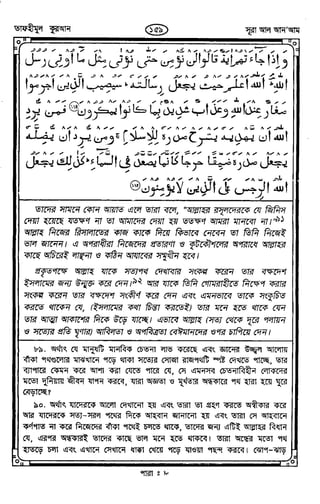 তাফহীমুল কুরআন
১৫৯
সূরা আল আন'আম
وَإِذَا جَاءَتْهُمْ آيَةٌ قَالُوا لَنْ نُؤْمِنَ حَتَّى نُؤْتَى مِثْلَ مَا أُوتِيَ رُسُلُ
اللَّهِ ۘ اللَّهُ أَعْلَمُ حَيْثُ يَجْعَلُ رِسَالَتَهُ ۗ سَيُصِيبُ الَّذِينَ أَجْرَمُوا
صَغَارٌ عِنْدَ اللَّهِ وَعَذَابٌ شَدِيدٌ بِمَا كَانُوا يَمْكُرُونَ فَمَنْ يُرِدِ
اللَّهُ أَنْ يَهْدِيَهُ يَشْرَحْ صَدْرَهُ لِلْإِسْلَامِ ۖ وَمَنْ يُرِدْ أَنْ يُضِلَّهُ
يَجْعَلْ صَدْرَهُ ضَيِّقًا حَرَجًا كَأَنَّمَا يَصَّعَّدُ فِي السَّمَاءِ ۚ كَذَلِكَ يَجْعَلُ
اللَّهُ الرِّجْسَ عَلَى الَّذِينَ لَا يُؤْمِنُونَ
তাদের সামনে কোন আয়াত এলে তারা বলে, "আল্লাহর রসূলদেরকে যে জিনিস
দেয়া হয়েছে যতক্ষণ না তা আমাদের দেয়া হয় ততক্ষণ আমরা মানবো না।"
আল্লাহ নিজের রিসালাতের কাজ কাকে দিয়ে কিভাবে নেবেন তা তিনি নিজেই
ভাল জানেন। এ অপরাধীরা নিজেদের প্রতারণা ও কূটকৌশলের অপরাধে আল্লাহর
কাছে অচিরেই লাঞ্ছনা ও কঠিন আযাবের সম্মুখীন হবে।
প্রকৃতপক্ষে আল্লাহ যাকে সত্যপথ দেখাবার সংকল্প করেন তার বক্ষদেশ
ইসলামের জন্য উন্মুক্ত করে দেন। আর যাকে তিনি গোমরাহীতে নিক্ষেপ করার
সংকল্প করেন তার বক্ষদেশ সংকীর্ণ করে দেন এবং এমনভাবে তাকে সংকুচিত
করতে থাকেন যে, (ইসলামের কথা চিন্তা করতেই) তার মনে হতে থাকে যেন
তার আত্মা আকাশের দিকে উড়ে যাচ্ছে। এভাবে আল্লাহ (সত্য থেকে দূরে পলায়ন
ও সত্যের প্রতি ঘৃণার) আবিলতা ও অপবিত্রতা বেঈমানদের ওপর চাপিয়ে দেন।
৮৯. অর্থাৎ যে মানুষটি মানবিক চেতনা লাভ করেছে এবং জ্ঞানের উজ্জ্বল আলোয়
বাঁকা পথগুলোর মাঝখানে পড়ে থাকা সত্যের সোজা রাজপথটি স্পষ্ট দেখতে পাচ্ছে, তার
ব্যাপারে কেমন করে আশা করা যেতে পারে যে, সে এমনসব চেতনাবিহীন লোকদের
মতো দুনিয়ায় জীবন যাপন করবে, যারা অজ্ঞতা ও মূর্খতার অন্ধকারে পথ হারা হয়ে ঘুরে
বেড়াচ্ছে?
৯০. অর্থাৎ যাদেরকে আলো দেখানো হয় এবং তারা তা গ্রহণ করতে অস্বীকার করে
আর যাদেরকে সত্য-সরল পথের দিকে আহবান জানানো হয় এবং তারা সে আহবানে
কর্ণপাত না করে নিজেদের বাঁকা পথেই চলতে থাকে, তাদের জন্য এটিই আল্লাহর বিধান
যে, এরপর অন্ধকারই তাদের কাছে ভাল মনে হতে থাকবে। তারা অন্ধের মতো পথ
হাতড়ে চলা এবং এখানে সেখানে ধাক্কা খেয়ে পড়ে যাওয়া পছন্দ করবে। ঝোপ-ঝাড়
পারা : ৮